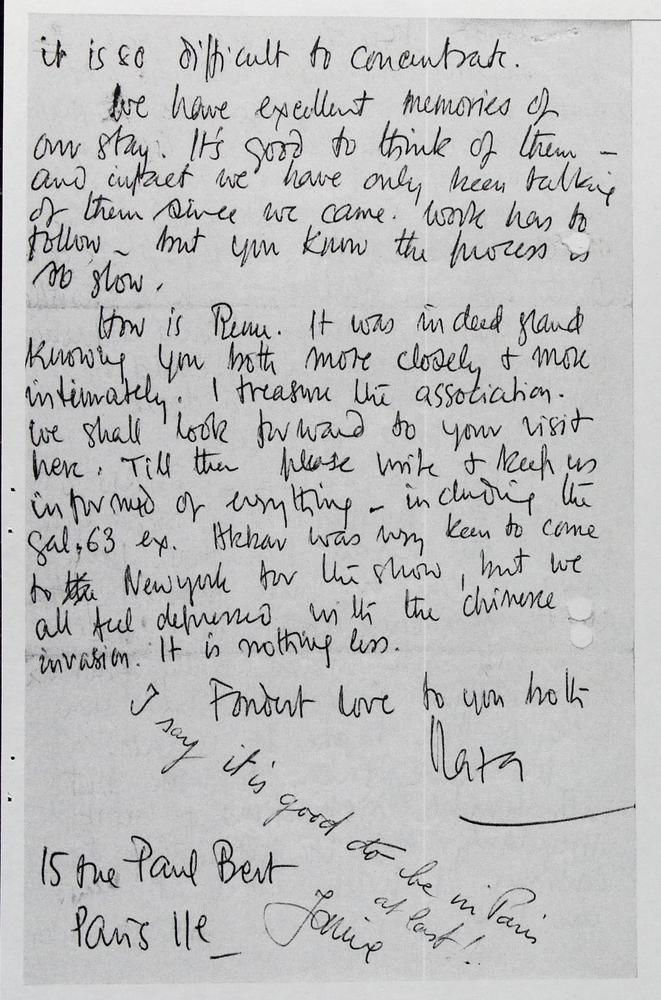 it is so difficult to concentrate.
We have excellent memories of
our stay. It's good to think of them –
and infact we have only been talking
of them since we came. Work has to
follow – but you know the process is
so slow.
How is Renu. It was indeed grand
knowing you both more closely & more
intimately. I treasure the association.
We shall look forward to your visit
here. Till then please write & keep us
informed of everything – including the
gal. 63 ex. Akbar was very keen to come
to New york for the show, but we
all feel depressed with the chinese
invasion. It is nothing less.
Fondest love to you both
Raza
I say it is good to be in Paris
at last!
Janine
15 rue Paul Bert
Paris 11e